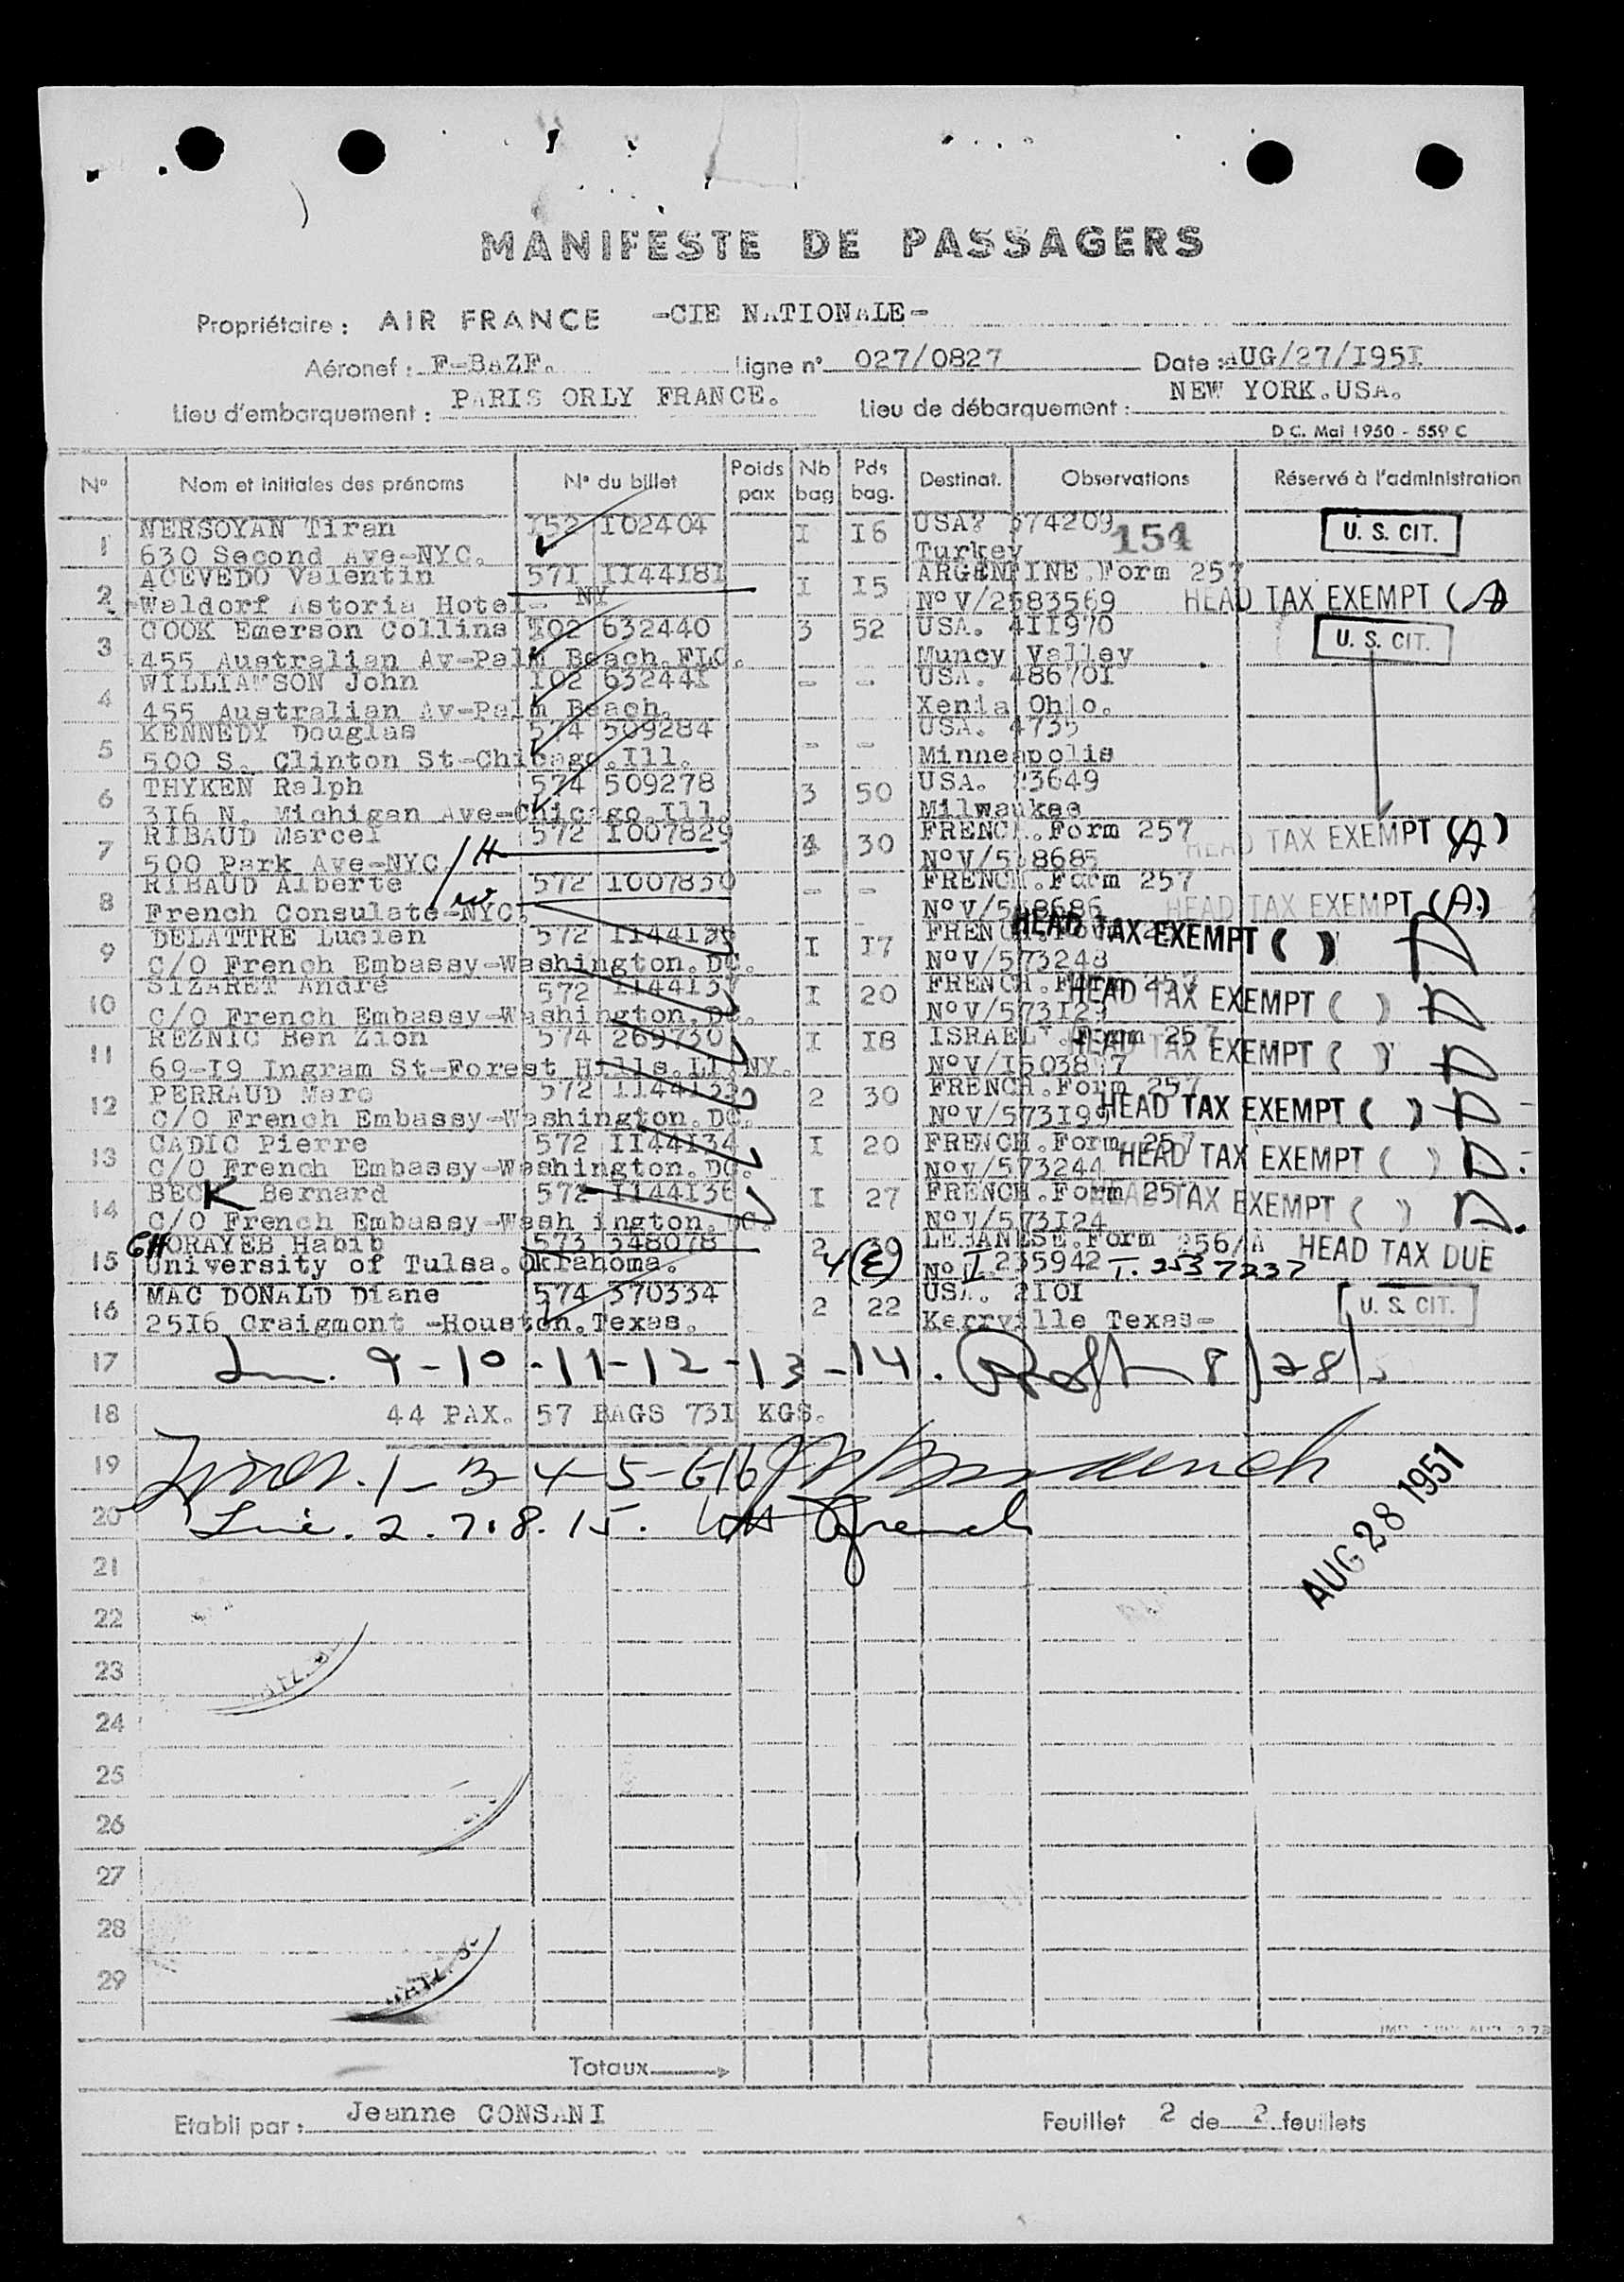 MANIFESTE DE PASSAGERS
Propriétaire : AIR FRANCE -CIE NATIONALE-
Aéronef : F-BAZF. Ligne n° 027/0827 Date : AUG/27/I95I
Lieu d'embarquement : PARIS ORLY FRANCE. Lieu de débarquement : NEW YORK.USA.
D C. Mai 1950 - 559 C
N° Nom et initiales des prénoms N° du billet Poids pax Nb bag Pds bag. Destinat. Observations Réservé à l'administration
1 NERSOYAN Tiran I52 I02404 I I6 USA? 574209 154 U. S. CIT.
630 Second Ave-NYC. Turkey
2 ACEVEDO Valentin 571 II44I8I I I5 ARGENTINE.Form 257
Waldorf Astoria Hotel- NY N°V/2583569 HEAD TAX EXEMPT (A)
3 COOK Emerson Collins I02 632440 3 52 USA. 4II970 U. S. CIT.
455 Australian Av-Palm Beach.FLO. Muncy Valley
4 WILLIAMSON John I02 63244I - - USA. 48670I
455 Australian Av-Palm Beach. Xenia Ohio.
5 KENNEDY Douglas 574 509284 - - USA. 4735
500 S. Clinton St-Chicago.Ill. Minneapolis
6 THYKEN Ralph 574 509278 3 50 USA. 23649
3I6 N. Michigan Ave-Chicago.Ill. Milwaukee
7 RIBAUD Marcel 572 I007829 4 30 FRENCH.Form 257 HEAD TAX EXEMPT (A)
500 Park Ave-NYC. /H N°V/568685
8 RIBAUD Alberte 572 I007830 - - FRENCH.Form 257
French Consulate-NYC. /w N°V/568686 HEAD TAX EXEMPT (A)
9 DELATTRE Lucien 572 II44I35 I I7 FRENCH.Form 257 HEAD TAX EXEMPT ( )
C/O French Embassy-Washington.DC. N°V/573248
10 SIZARET André 572 II44I37 I 20 FRENCH.Form 257 HEAD TAX EXEMPT ( )
C/O French Embassy-Washington.DC. N°V/573I29
11 REZNIC Ben Zion 574 269730 I I8 ISRAEL.Form 257 HEAD TAX EXEMPT ( )
69-I9 Ingram St-Forest Hills.LI.NY.
12 PERRAUD Marc 572 II44I33 2 30 FRENCH.Form 257
C/O French Embassy-Washington.DC. N°V/573I99 HEAD TAX EXEMPT ( )
13 CADIC Pierre 572 II44I34 I 20 FRENCH.Form 257 HEAD TAX EXEMPT ( )
C/O French Embassy-Washington.DC. N°V/573244
14 BECK Bernard 572 II44I36 I 27 FRENCH.Form 257 HEAD TAX EXEMPT ( )
C/O French Embassy-Wash ington.DC. N°V/573I24
15 GHORAYEB Habib 573 348078 2 30 LEBANESE.Form 256/A HEAD TAX DUE
University of Tulsa.Oklrahoma. 4(E) N° I 235942 I. 2537237
16 MAC DONALD Diane 574 370334 2 22 USA. 2I0I U. S. CIT.
25I6 Craigmont -Houston.Texas. Kerrville Texas-
17 9-10-11-12-13-14. 8/28/5
18 44 PAX. 57 BAGS 73I KGS.
19 1-3-4-5-6-16
20 2.7.8.15. French
AUG 28 1951
21
22
23
24
25
26
27
28
29
Totaux
Etabli par : Jeanne CONSANI Feuillet 2 de 2 feuillets